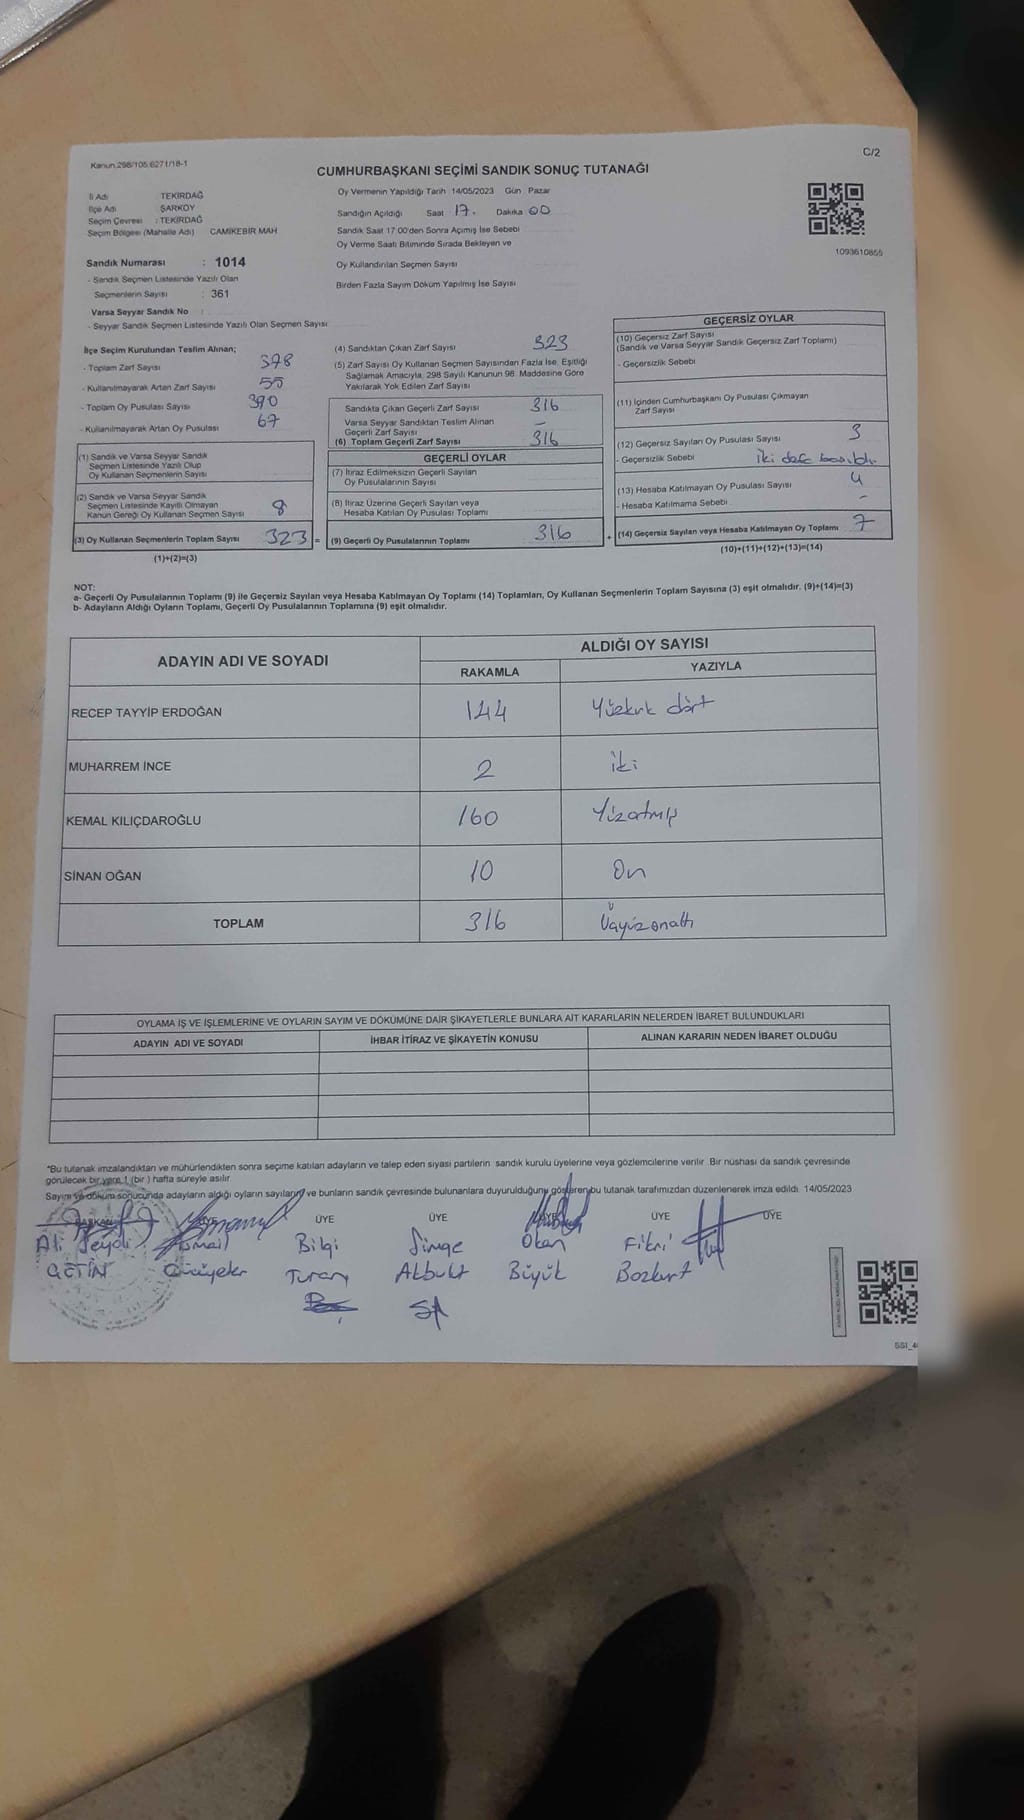 Kanun.298/105.6271/18-1
C/2
CUMHURBAŞKANI SEÇİMİ SANDIK SONUÇ TUTANAĞI
İl Adı TEKİRDAĞ
İlçe Adı ŞARKÖY
Seçim Çevresi : TEKİRDAĞ
Seçim Bölgesi (Mahalle Adı) CAMİKEBİR MAH
Sandık Numarası : 1014
- Sandık Seçmen Listesinde Yazılı Olan
Seçmenlerin Sayısı : 361
Varsa Seyyar Sandık No :
- Seyyar Sandık Seçmen Listesinde Yazılı Olan Seçmen Sayısı
Oy Vermenin Yapıldığı Tarih 14/05/2023 Gün : Pazar
Sandığın Açıldığı Saat 17. Dakika 00
Sandık Saat 17:00'den Sonra Açımış İse Sebebi
Oy Verme Saati Bitiminde Sırada Bekleyen ve
Oy Kullandırılan Seçmen Sayısı
Birden Fazla Sayım Döküm Yapılmış İse Sayısı
1093610855
İlçe Seçim Kurulundan Teslim Alınan;
- Toplam Zarf Sayısı 378
- Kullanılmayarak Artan Zarf Sayısı 55
- Toplam Oy Pusulası Sayısı 390
- Kullanılmayarak Artan Oy Pusulası 67
(1) Sandık ve Varsa Seyyar Sandık
Seçmen Listesinde Yazılı Olup
Oy Kullanan Seçmenlerin Sayısı
(2) Sandık ve Varsa Seyyar Sandık
Seçmen Listesinde Kayıtlı Olmayan
Kanun Gereği Oy Kullanan Seçmen Sayısı 8
(3) Oy Kullanan Seçmenlerin Toplam Sayısı 323 =
(1)+(2)=(3)
(4) Sandıktan Çıkan Zarf Sayısı 323
(5) Zarf Sayısı Oy Kullanan Seçmen Sayısından Fazla İse, Eşitliği
Sağlamak Amacıyla, 298 Sayılı Kanunun 98. Maddesine Göre
Yakılarak Yok Edilen Zarf Sayısı
Sandıkta Çıkan Geçerli Zarf Sayısı 316
Varsa Seyyar Sandıktan Teslim Alınan
Geçerli Zarf Sayısı -
(6) Toplam Geçerli Zarf Sayısı 316
GEÇERLİ OYLAR
(7) İtiraz Edilmeksizin Geçerli Sayılan
Oy Pusulalarının Sayısı
(8) İtiraz Üzerine Geçerli Sayılan veya
Hesaba Katılan Oy Pusulası Toplamı
(9) Geçerli Oy Pusulalarının Toplamı 316 +
GEÇERSİZ OYLAR
(10) Geçersiz Zarf Sayısı
(Sandık ve Varsa Seyyar Sandık Geçersiz Zarf Toplamı)
- Geçersizlik Sebebi
(11) İçinden Cumhurbaşkanı Oy Pusulası Çıkmayan
Zarf Sayısı
(12) Geçersiz Sayılan Oy Pusulası Sayısı 3
- Geçersizlik Sebebi iki defa basıldı.
(13) Hesaba Katılmayan Oy Pusulası Sayısı 4
- Hesaba Katılmama Sebebi -
(14) Geçersiz Sayılan veya Hesaba Katılmayan Oy Toplamı 7
(10)+(11)+(12)+(13)=(14)
NOT:
a- Geçerli Oy Pusulalarının Toplamı (9) ile Geçersiz Sayılan veya Hesaba Katılmayan Oy Toplamı (14) Toplamları, Oy Kullanan Seçmenlerin Toplam Sayısına (3) eşit olmalıdır. (9)+(14)=(3)
b- Adayların Aldığı Oyların Toplamı, Geçerli Oy Pusulalarının Toplamına (9) eşit olmalıdır.
ADAYIN ADI VE SOYADI
ALDIĞI OY SAYISI
RAKAMLA YAZIYLA
RECEP TAYYİP ERDOĞAN 144 Yüzkırk dört
MUHARREM İNCE 2 iki
KEMAL KILIÇDAROĞLU 160 Yüzatmış
SİNAN OĞAN 10 On
TOPLAM 316 Üçyüzonaltı
OYLAMA İŞ VE İŞLEMLERİNE VE OYLARIN SAYIM VE DÖKÜMÜNE DAİR ŞİKAYETLERLE BUNLARA AİT KARARLARIN NELERDEN İBARET BULUNDUKLARI
ADAYIN ADI VE SOYADI İHBAR İTİRAZ VE ŞİKAYETİN KONUSU ALINAN KARARIN NEDEN İBARET OLDUĞU
*Bu tutanak imzalandıktan ve mühürlendikten sonra seçime katılan adayların ve talep eden siyasi partilerin sandık kurulu üyelerine veya gözlemcilerine verilir. Bir nüshası da sandık çevresinde
görülecek bir yere 1 (bir) hafta süreyle asılır
Sayım ve döküm sonucunda adayların aldığı oyların sayılarını ve bunların sandık çevresinde bulunanlara duyurulduğunu gösteren bu tutanak tarafımızdan düzenlenerek imza edildi. 14/05/2023
BAŞKAN ÜYE ÜYE ÜYE ÜYE ÜYE ÜYE
Ali Seydi İsmail Bilgi Simge Okan Fikri
ÇETİN Turan Akbulut Büyük Bozkurt